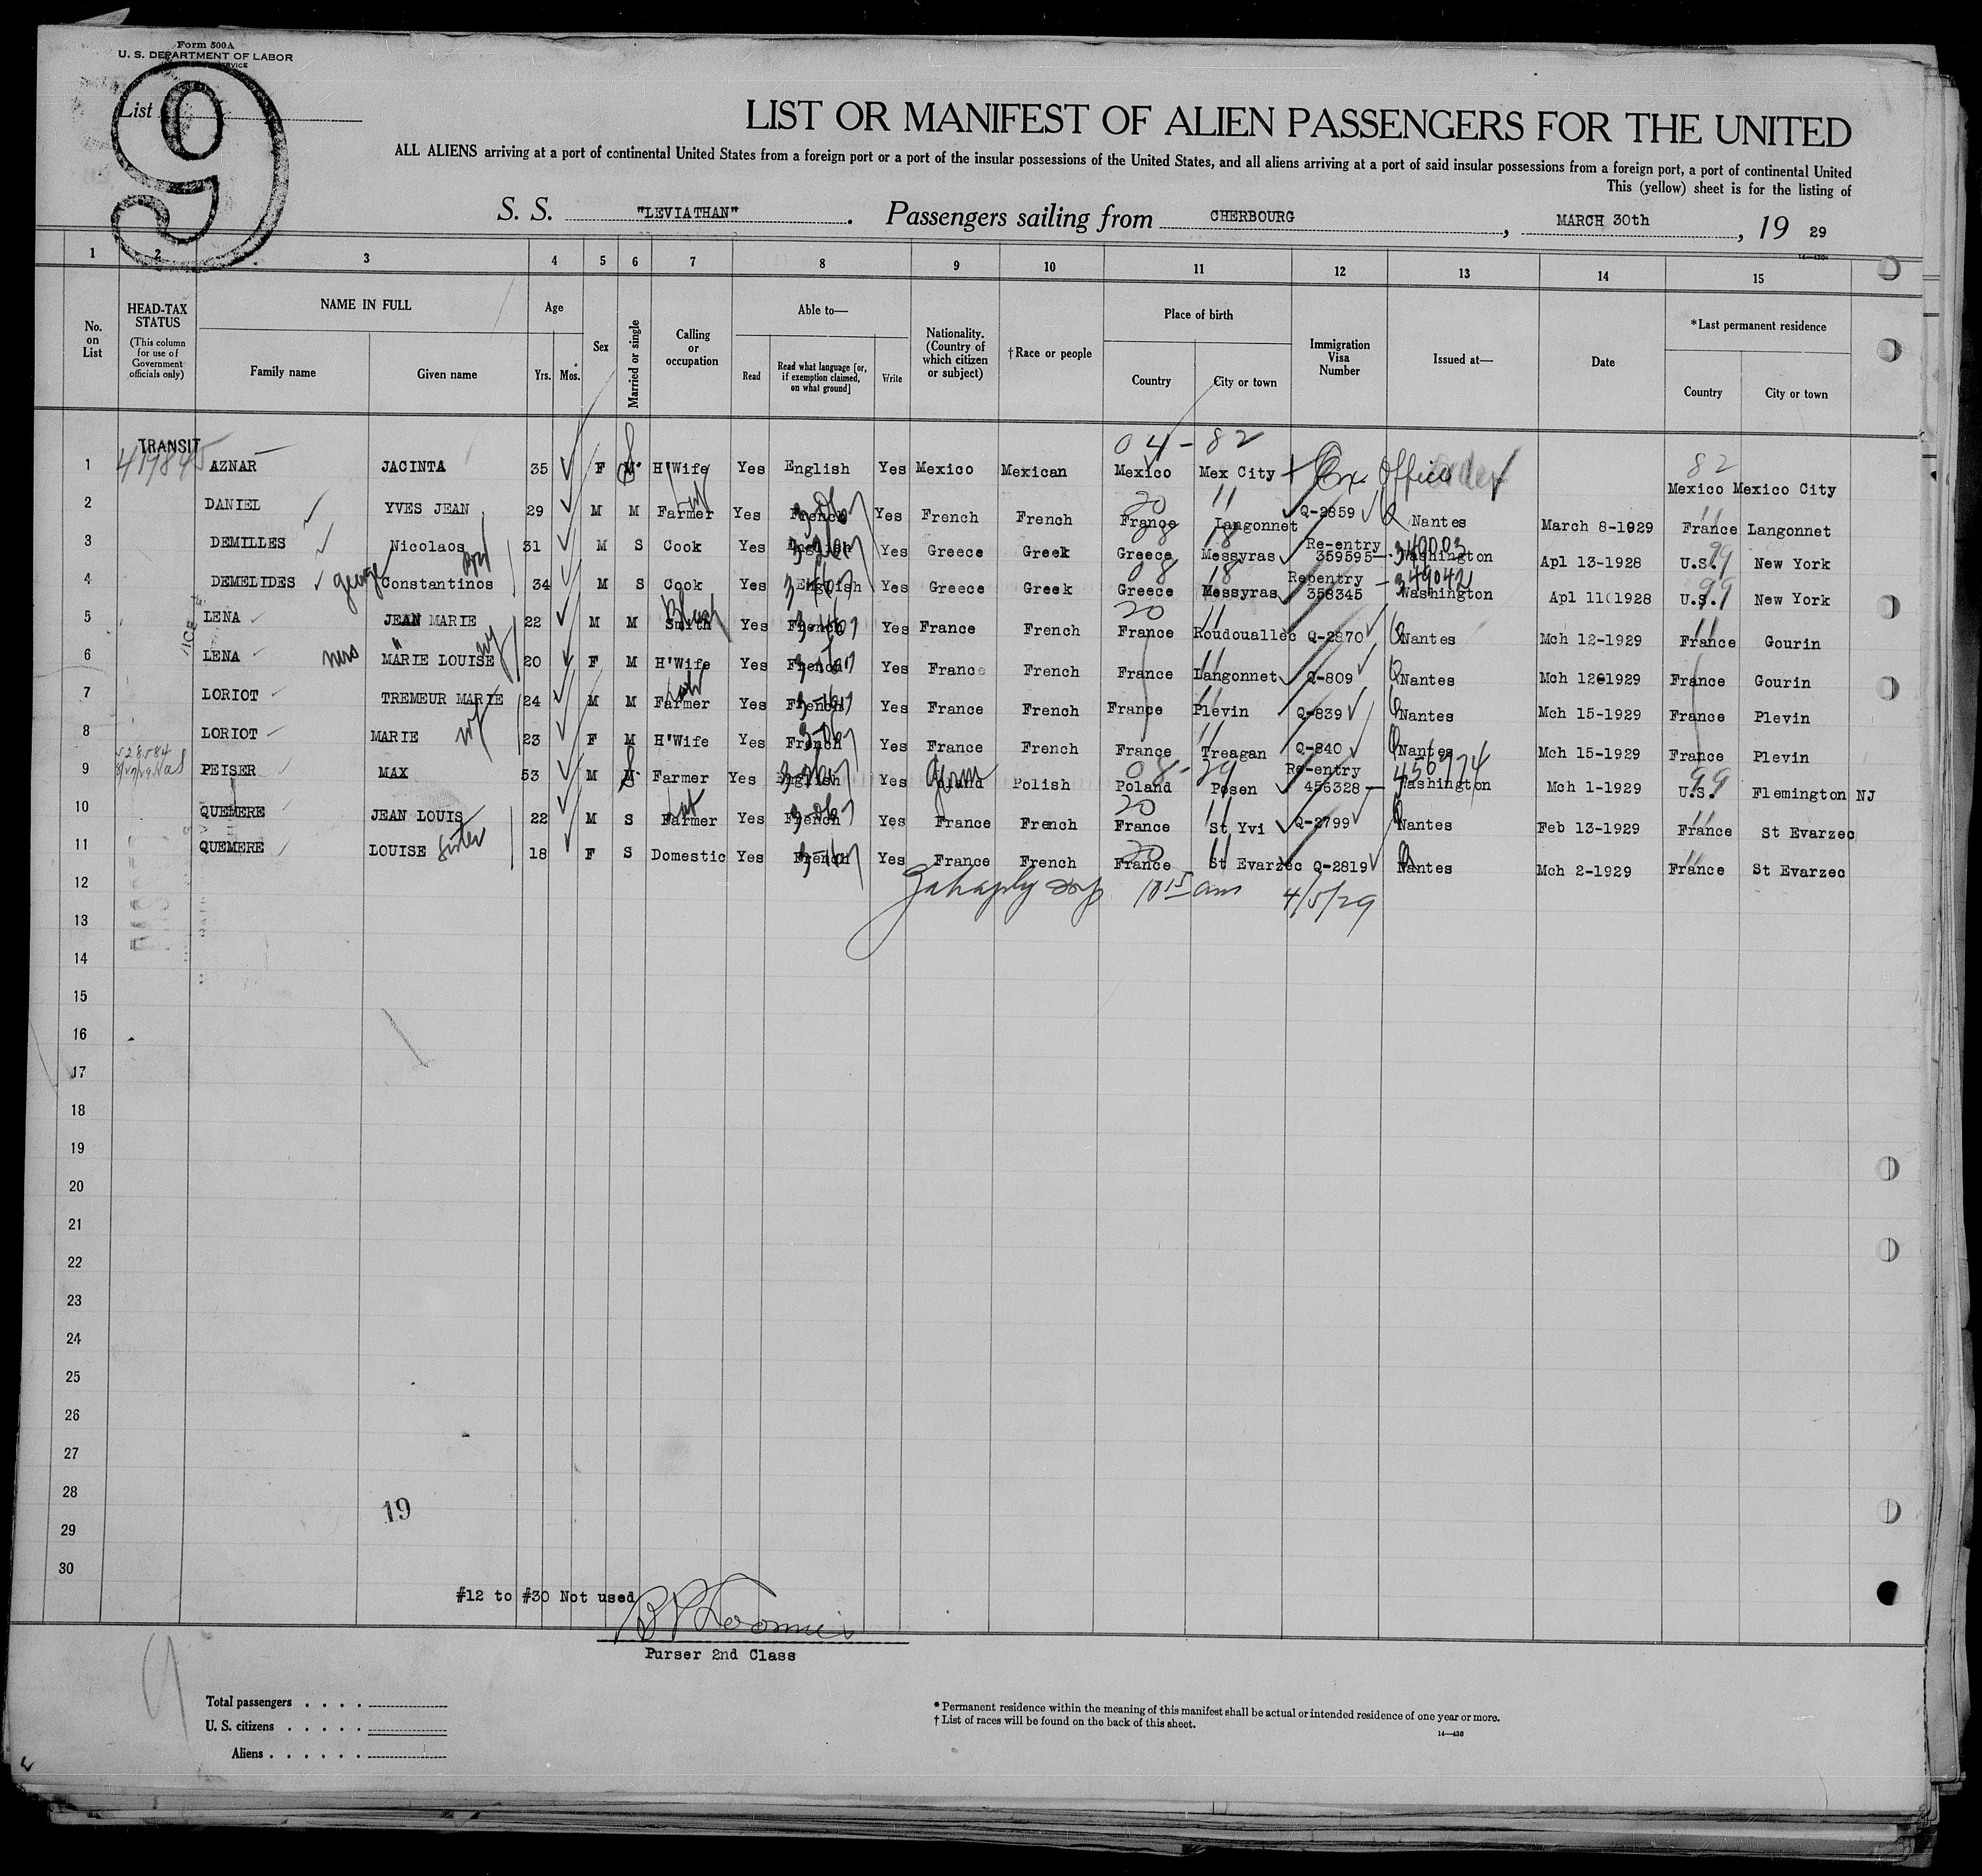 Form 500A
U. S. DEPARTMENT OF LABOR
List
9
LIST OR MANIFEST OF ALIEN PASSENGERS FOR THE UNITED
ALL ALIENS arriving at a port of continental United States from a foreign port or a port of the insular possessions of the United States, and all aliens arriving at a port of said insular possessions from a foreign port, a port of continental United
This (yellow) sheet is for the listing of
S. S. "LEVIATHAN". Passengers sailing from CHERBOURG, MARCH 30th, 19 29
14—430
1 2 3 4 5 6 7 8 9 10 11 12 13 14 15
No. on List
HEAD-TAX STATUS (This column for use of Government officials only)
NAME IN FULL
Family name Given name
Age
Yrs. Mos.
Sex
Married or single
Calling or occupation
Able to—
Read Read what language [or, if exemption claimed, on what ground] Write
Nationality. (Country of which citizen or subject)
†Race or people
Place of birth
Country City or town
Immigration Visa Number
Issued at—
Date
*Last permanent residence
Country City or town
TRANSIT 04-82 82
1 AZNAR JACINTA 35 F M H'Wife Yes English Yes Mexico Mexican Mexico Mex City Office Mexico Mexico City
2 DANIEL YVES JEAN 29 M M Farmer Yes French Yes French French 20 France 11 Langonnet Q-2859 Nantes March 8-1929 France Langonnet
3 DEMILLES Nicolaos 31 M S Cook Yes English Yes Greece Greek 08 Greece 18 Messyras Re-entry 359595 349003 Washington Apl 13-1928 U.S. 99 New York
4 DEMELIDES george Constantinos 34 M S Cook Yes English Yes Greece Greek 08 Greece 18 Messyras Repentry 358345 349042 Washington Apl 11(1928 U.S. 99 New York
5 LENA JEAN MARIE 22 M M Smith Yes French Yes France French 20 France 11 Roudouallec Q-2870 Nantes Mch 12-1929 France Gourin
6 LENA mrs MARIE LOUISE wf 20 F M H'Wife Yes French Yes France French France 11 Langonnet Q-809 Nantes Mch 12-1929 France Gourin
7 LORIOT TREMEUR MARIE 24 M M Farmer Yes French Yes France French France 11 Plevin Q-839 Nantes Mch 15-1929 France Plevin
8 LORIOT MARIE wf 23 F M H'Wife Yes French Yes France French France 11 Treagan Q-840 Nantes Mch 15-1929 France Plevin
9 PEISER MAX 53 M M Farmer Yes English Yes Poland Polish 08-29 Poland Posen Re-entry 456328 456974 Washington Mch 1-1929 U.S. 99 Flemington NJ
10 QUEMERE JEAN LOUIS 22 M S Farmer Yes French Yes France French 20 France 11 St Yvi Q-2799 Nantes Feb 13-1929 France St Evarzec
11 QUEMERE LOUISE sister 18 F S Domestic Yes French Yes France French 20 France 11 St Evarzec Q-2819 Nantes Mch 2-1929 France St Evarzec
12 10 15 am 4/5/29
13
14
15
16
17
18
19
20
21
22
23
24
25
26
27
28
19
29
30
#12 to #30 Not used
Purser 2nd Class
9
Total passengers . . . .
U. S. citizens . . . . .
Aliens . . . . . .
* Permanent residence within the meaning of this manifest shall be actual or intended residence of one year or more.
† List of races will be found on the back of this sheet.
14—430